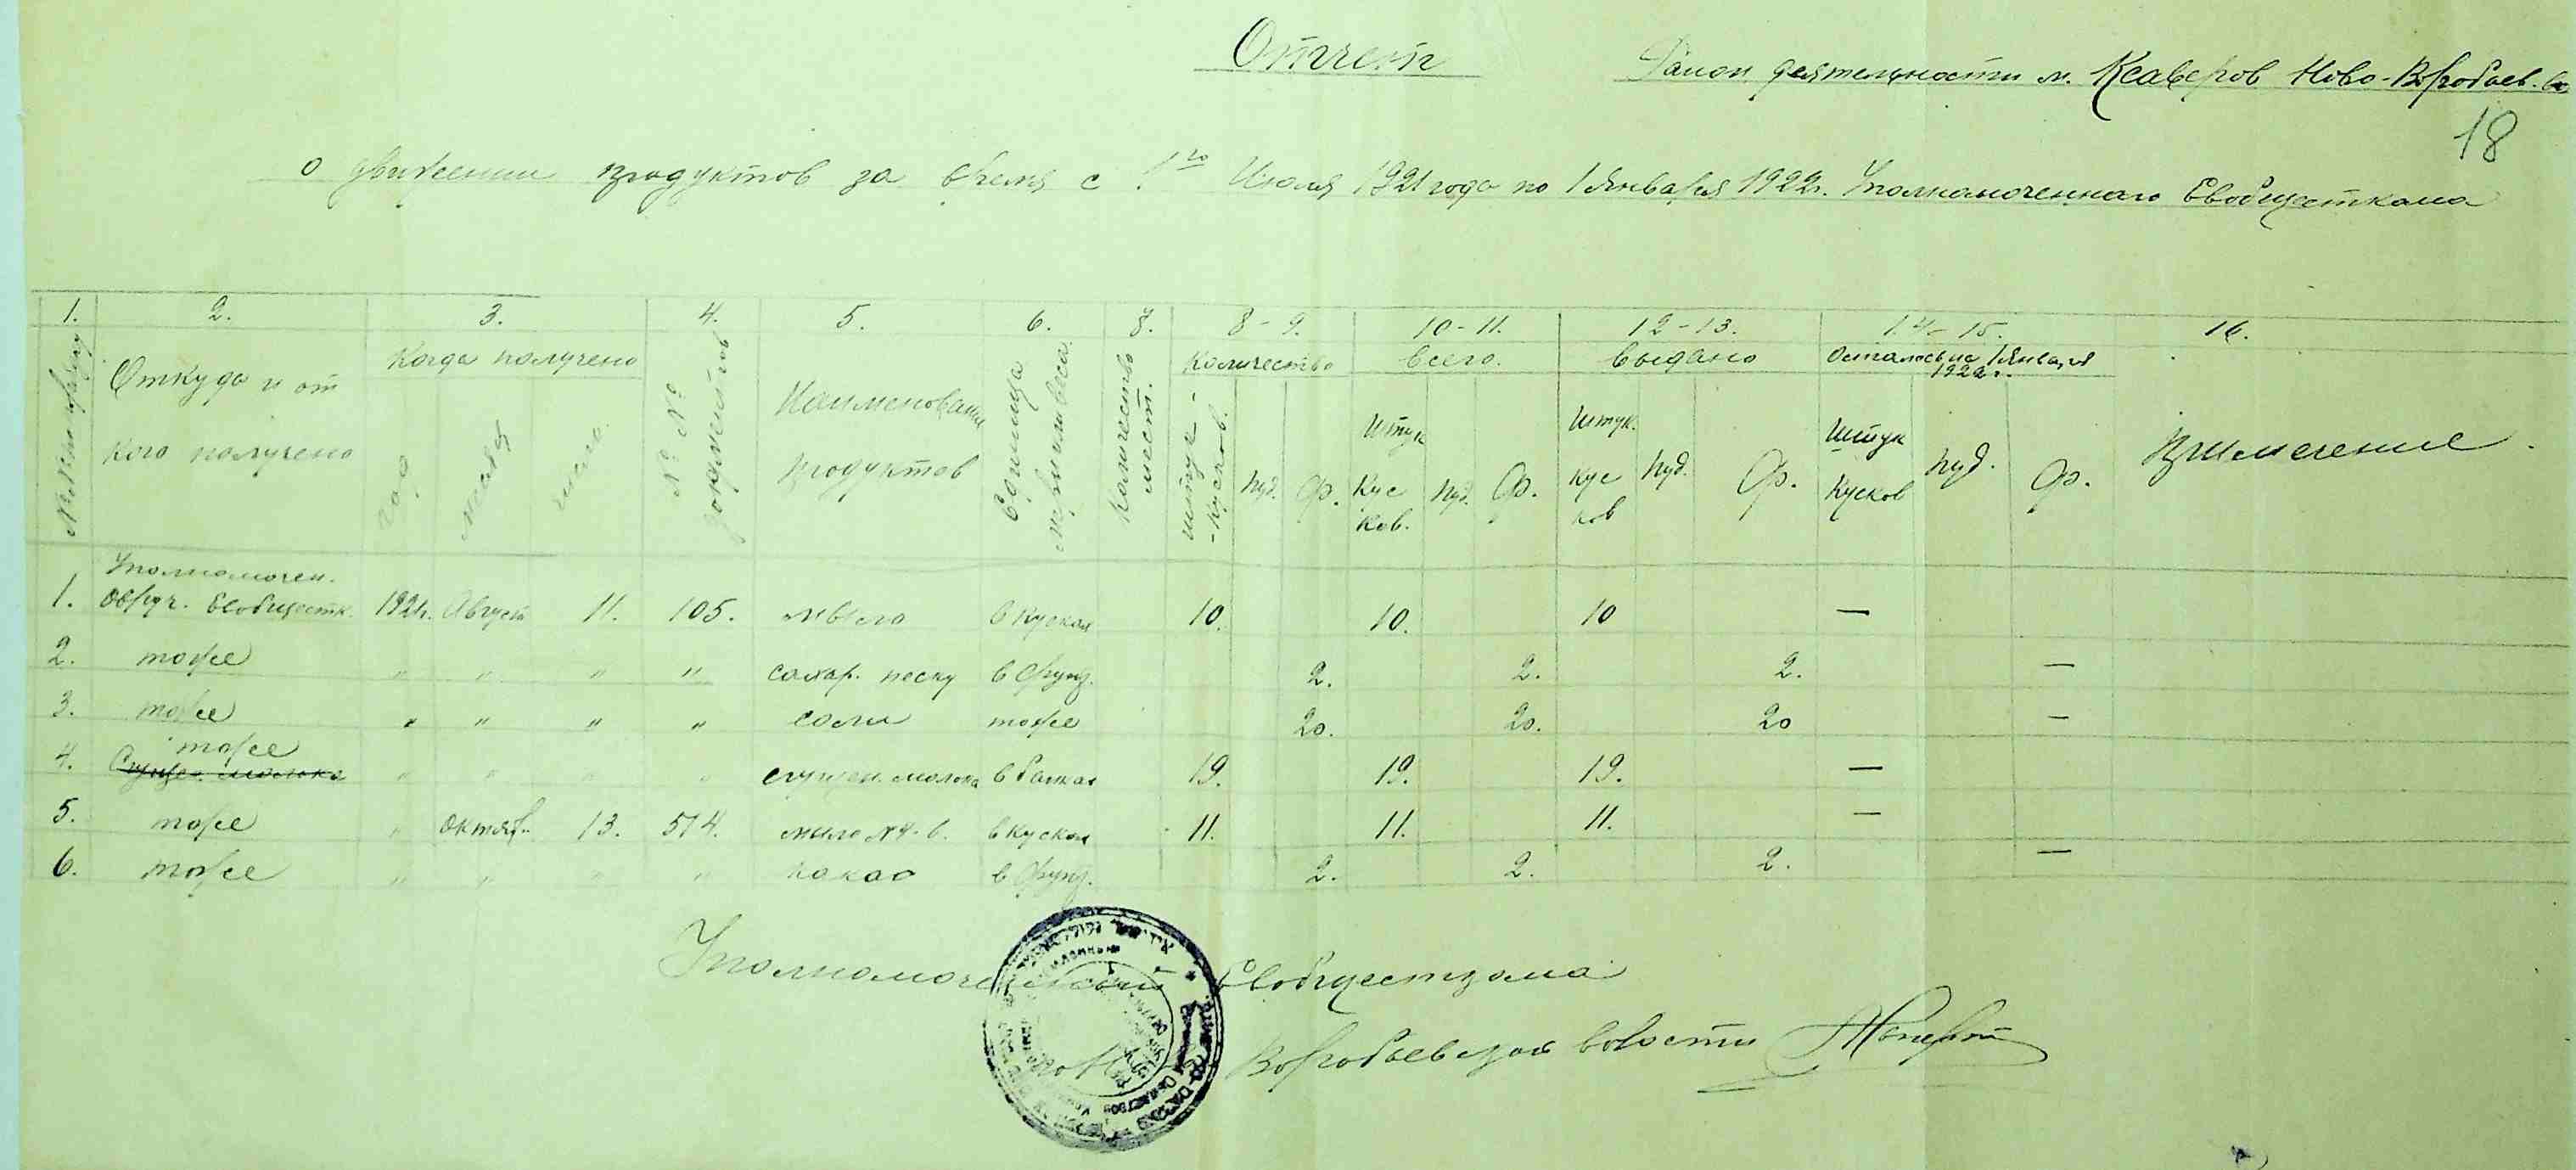 Отчет
Район деятельности м. Ксаверов Ново-Воробьев. в.
18
о движении продуктов за время с 1го Июля 1921 года по 1 Января 1922 г. Уполномоченнаго Евобщесткома
1. 2. 3. 4. 5. 6. 8. 8-9. 10-11. 12-13. 14-15. 16.
№№ по порядку
Откуда и от кого получено
Когда получено
год месяц число
№ № документов
Наименование продуктов
Единица меры или веса
Количество мест.
Количество
штук - кусков. пуд. ф.
всего.
Штук Кусков. пуд. ф.
выдано
Штук. Кусков пуд. ф.
Осталось на 1 Января 1922 г.
Штук Кусков пуд. ф.
Примечение.
Уполномочен.
1. Овруч. Евобщестк. 1921 г. Август 11. 105. мыло в кусках 10. 10. 10 —
2. тоже " " " " сахар. песку в фунт. 2. 2. 2. —
3. тоже " " " " соли тоже 20. 20. 20 —
тоже
4. Сгущен. молока " " " " сгущен. молока в банках 19. 19. 19. —
5. тоже " Октяб. 13. 574. мыло №4-6. в кусках 11. 11. 11. —
6. тоже " " " " какао в фунт. 2. 2. 2. —
Уполномоченный Евобщесткома
Воробьевской волости